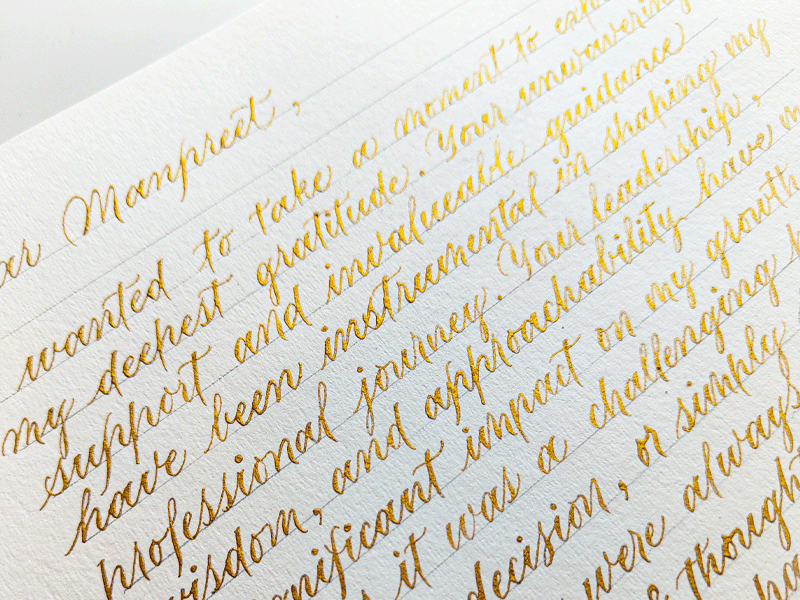 ar Manpreet,
wanted to take a moment to exp
my deepest gratitude. Your unwavering
support and invalueable guidance
have been instrumental in shaping my
professional journey. Your leadership,
wisdom, and approachability have m
nificant impact on my growth
it was a challenging
decision, or simply
were always
though